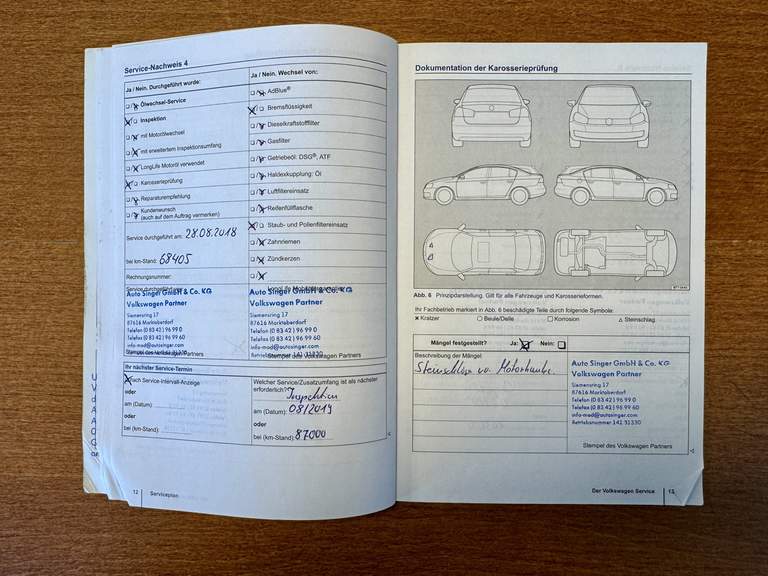 Service-Nachweis 4
Ja / Nein. Durchgeführt wurde:
Ölwechsel-Service
Inspektion
mit Motorölwechsel
mit erweitertem Inspektionsumfang
LongLife Motoröl verwendet
Karosserieprüfung
Reparaturempfehlung
Kundenwunsch
(auch auf dem Auftrag vermerken)
Service durchgeführt am: 28.08.2018
bei km-Stand: 68405
Rechnungsnummer:
Service durchgeführt
Auto Singer GmbH & Co. KG
Volkswagen Partner
Siemensring 17
87616 Marktoberdorf
Telefon (0 83 42) 96 99 0
Telefax (0 83 42) 96 99 60
info-mod@autosinger.com
Stempel des Volkswagen Partners
Ja / Nein, Wechsel von:
AdBlue®
Bremsflüssigkeit
Dieselkraftstofffilter
Gasfilter
Getriebeöl: DSG®, ATF
Haldexkupplung: Öl
Luftfiltereinsatz
Reifenfüllflasche
Staub- und Pollenfiltereinsatz
Zahnriemen
Zündkerzen
Auto Singer GmbH & Co. KG
Volkswagen Partner
Siemensring 17
87616 Marktoberdorf
Telefon (0 83 42) 96 99 0
Telefax (0 83 42) 96 99 60
info-mod@autosinger.com
Betriebsnummer 141 31330
Stempel des Volkswagen Partners
Ihr nächster Service-Termin
Nach Service-Intervall-Anzeige
oder
am (Datum):
oder
bei (km-Stand):
Welcher Service/Zusatzumfang ist als nächster
erforderlich? Inspektion
am (Datum): 08/2019
oder
bei (km-Stand): 87000
12 Serviceplan
Dokumentation der Karosserieprüfung
Abb. 6 Prinzipdarstellung. Gilt für alle Fahrzeuge und Karosserieformen.
Ihr Fachbetrieb markiert in Abb. 6 beschädigte Teile durch folgende Symbole:
× Kratzer ○ Beule/Delle □ Korrosion △ Steinschlag
Mängel festgestellt? Ja: Nein:
Beschreibung der Mängel:
Steinschläge Motorhaube
Auto Singer GmbH & Co. KG
Volkswagen Partner
Siemensring 17
87616 Marktoberdorf
Telefon (0 83 42) 96 99 0
Telefax (0 83 42) 96 99 60
info-mod@autosinger.com
Betriebsnummer 141 31330
Stempel des Volkswagen Partners
Der Volkswagen Service 13